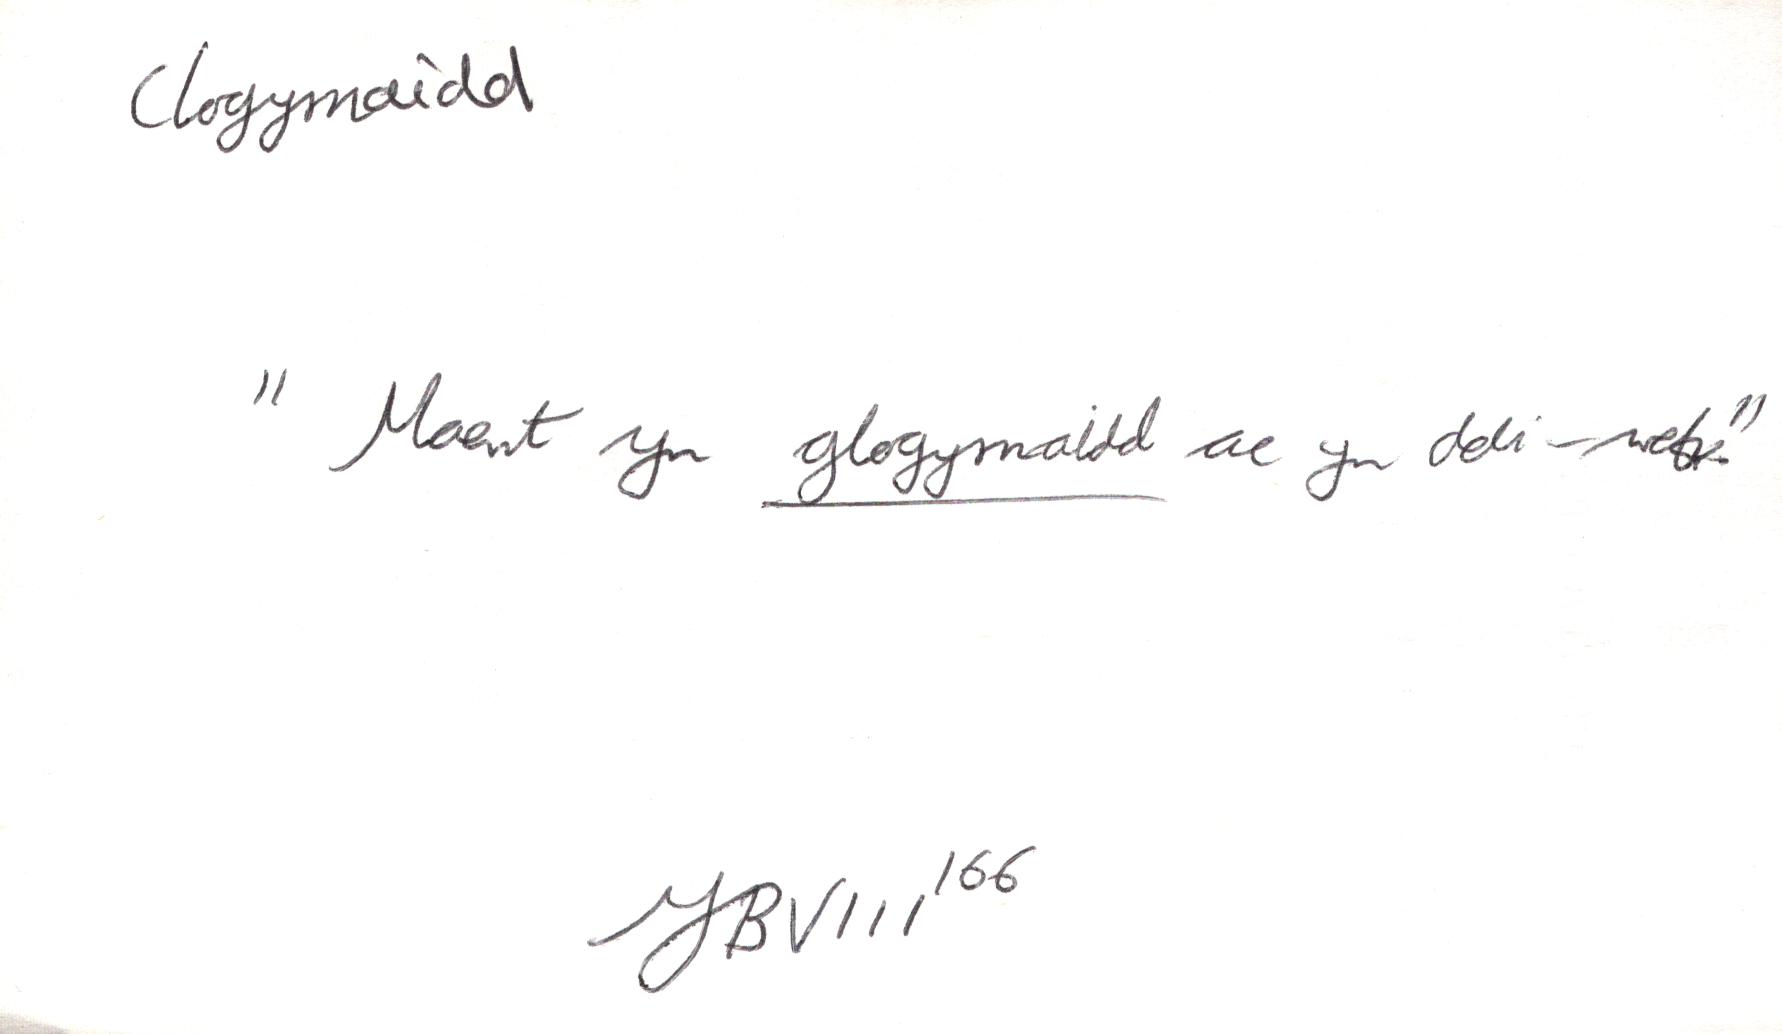 Clogymaidd
" Maent yn glogymaidd ac yn ddi-
YBVIII 166